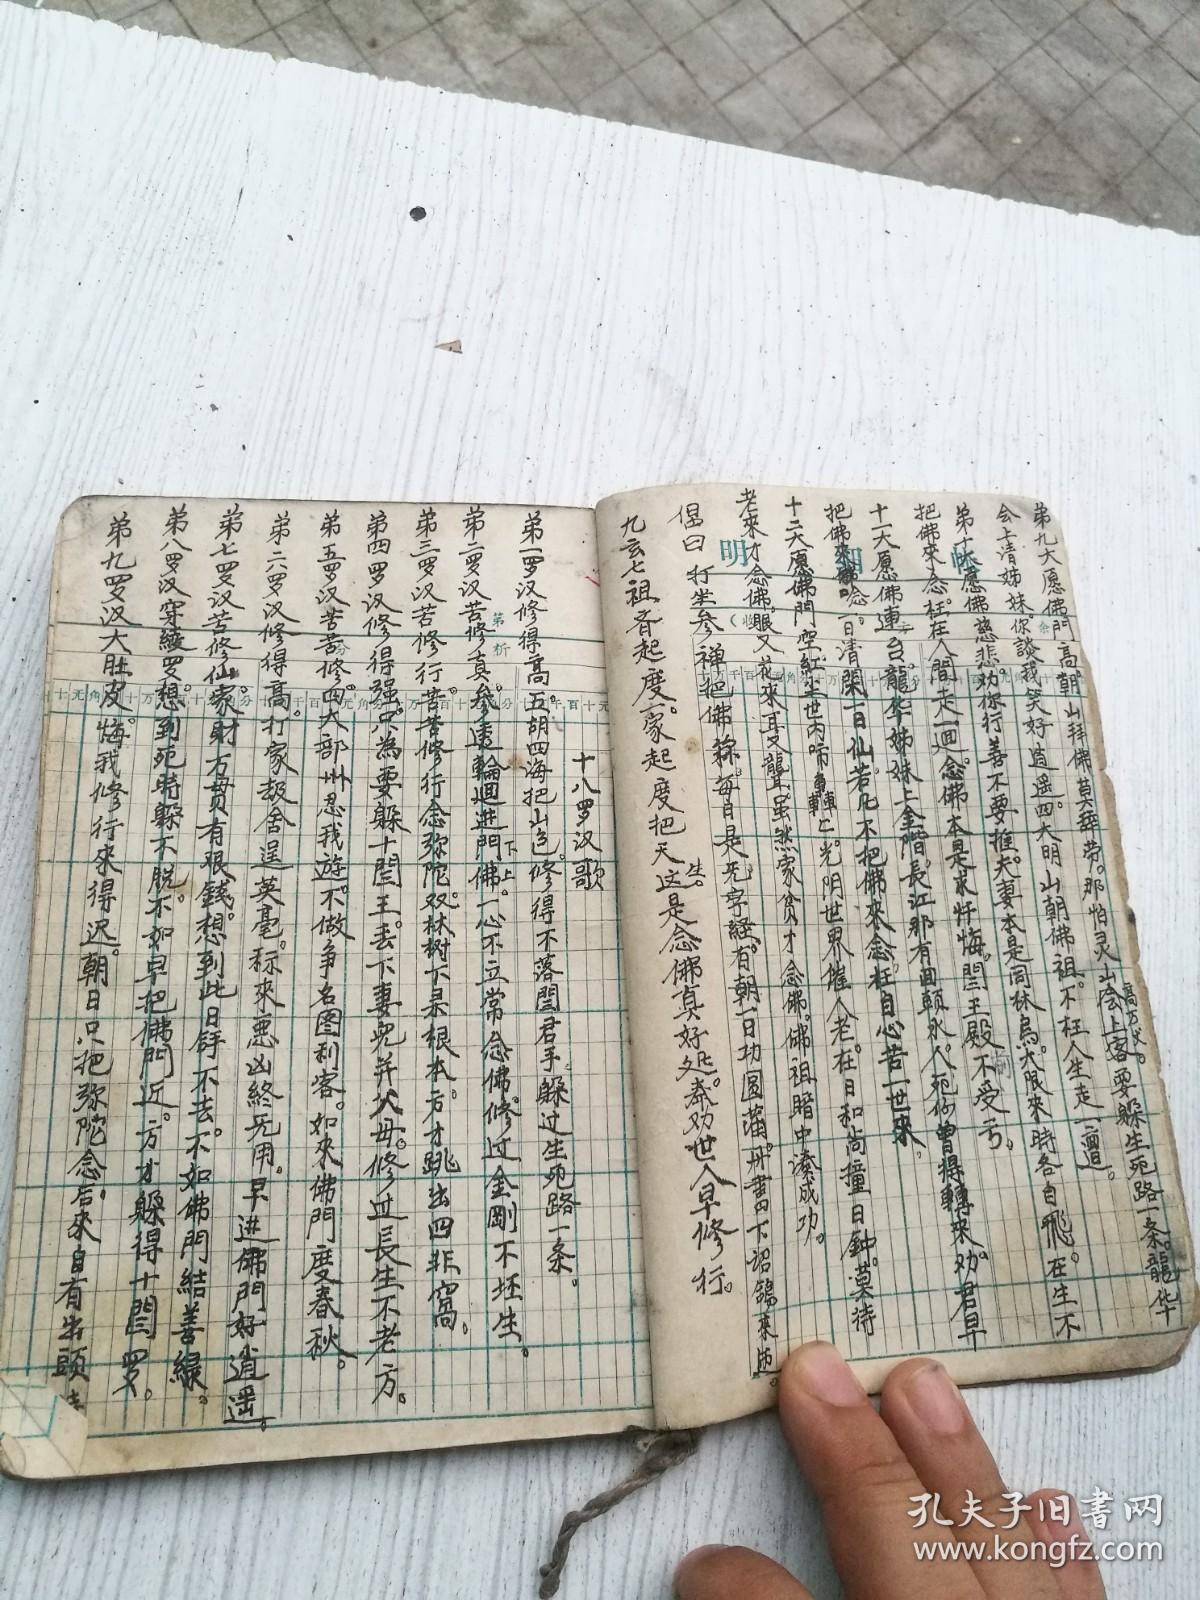 第九大愿佛門高。朝山拜佛莫辞劳。那怕灵山高万丈。
会上客要躲生死路一条。龍华
会上清姊妹你談我笑好逍遥。四大明山朝佛祖。不枉人生走一遭。
第十大愿佛慈悲。劝你行善不要推。夫妻本是同林鳥。大限来時各自飛。在生不
把佛來念。枉在人間走一迴。念佛本是求忏悔。閻王殿不受亏。
十一大愿佛連台。龍华姊妹上金階。長江那有回頭水。人死何曾得轉來。劝君早
把佛來念。一日清閑一日仙。若凡不把佛來念。枉自心苦一世來。
十二大愿佛門空。紅尘世内
光阴世界催人老。在日和尚撞日鈡。莫待
老來才念佛。眼又花來耳又聾。虽然家贫才念佛。佛祖暗中湊成功。
偈曰 打坐参禅把佛
每日是无字経。有朝一日功圆蒲。丹書下詔錫來
九玄七祖斉起度。一家起度把天生。
这是念佛真好处。奉劝世人早修行。
明細帐
十八罗汉歌
第一罗汉修得高。五胡四海把山包。修得不落閻君手。躲过生死路一条。
第二罗汉苦修真。参透輪迴進門佛。一心不立常念佛。修过金剛不坯生。
下上
第三罗汉苦修行。苦苦修行念弥陀。双林树下是根本。方才跳出四非窩。
第四罗汉修得强。只為要躲十閻王。丢下妻兒并父母。修过長生不老方。
第五罗汉苦苦修。四大部州忍我遊。不做争名图利客。如來佛門度春秋。
第六罗汉修得高。打家刼舍逞英毫。称來恶凶終无用。早进佛門好逍遥。
第七罗汉苦修仙。家財万贯有艰錢。想到此日舒不去。不如佛門結善緣。
第八罗汉穿綾罗。想到死時躲不脱。不如早把佛門近。方才躲得十閻罗。
第九罗汉大肚皮。悔我修行來得迟。朝日只把弥陀念。后來自有出頭
孔夫子旧書网
www.kongfz.com